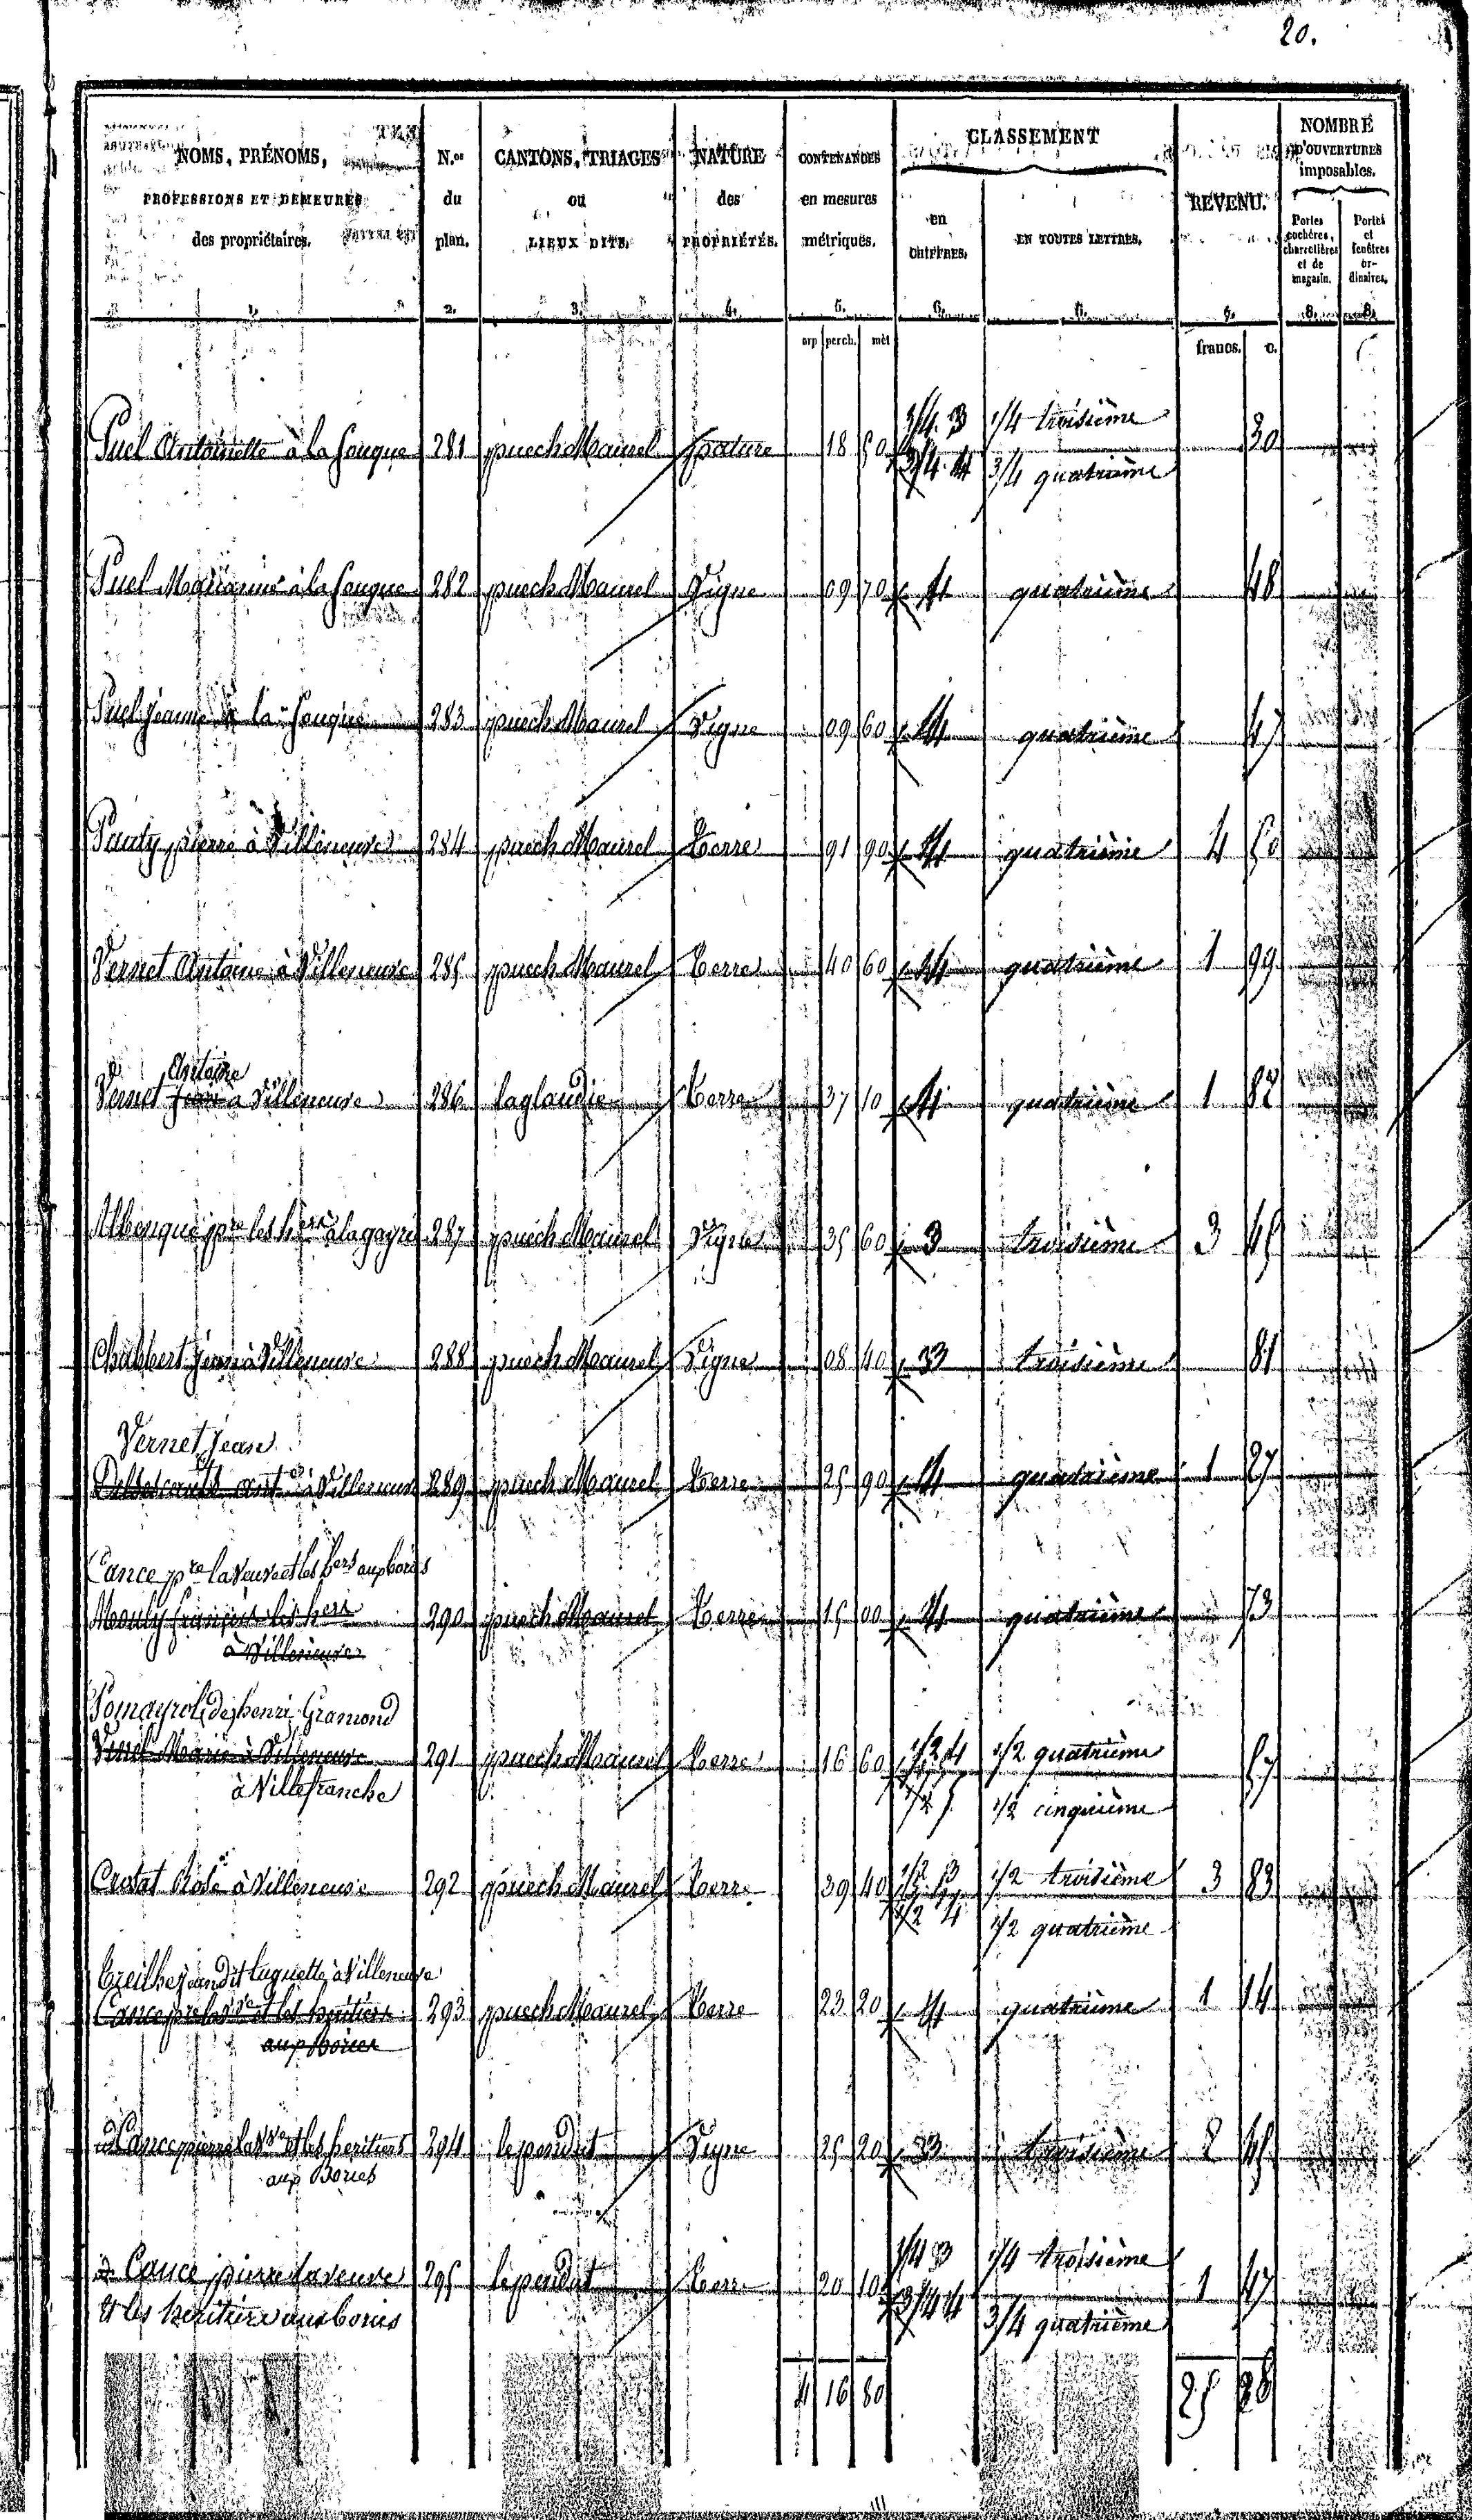 20.
NOMS, PRÉNOMS,
PROFESSIONS ET DEMEURES
des propriétaires.
N.os
du
plan.
CANTONS, TRIAGES
ou
LIEUX DITS.
NATURE
des
PROPRIÉTÉS.
CONTENANCES
en mesures
métriques.
CLASSEMENT
en
CHIFFRES.
EN TOUTES LETTRES.
REVENU.
NOMBRE
D'OUVERTURES
imposables.
Portes
cochères,
charretières
et de
magasin.
Portes
et
fenêtres
or-
dinaires.
1. 2. 3. 4. 5. 6. 6. 7. 8. 8.
arp perch. mèt francs. c.
1/4 3 1/4 troisième
Puel Antoinette à la 281 puech Maurel pature 18 50 30
3/4 4 3/4 quatrième
Puel Marianne à la 282 puech Maurel Vigne 09 70 4 quatrième 48
Puel jeanne à la 283 puech Maurel Vigne 09 60 4 quatrième 47
Pauty pierre à Villeneuve 284 puech Maurel Terre 91 90 4 quatrième 4 50
Vernet Antoine à Villeneuve 285 puech Maurel Terre 40 60 4 quatrième 1 99
Antoine
Vernet Jean à Villeneuve 286 laglaudie Terre 37 10 4 quatrième 1 82
Albouque pre les hers à lagayrie 287 puech Maurel Vigne 35 60 3 troisième 3 45
Chabbert jean à Villeneuve 288 puech Maurel Vigne 08 40 3 troisième 81
Vernet Jean
ant à Villeneuve 289 puech Maurel Terre 25 90 4 quatrième 1 27
Cance pre la Veuve et les hers aux bories
Mouly françois les hers 290 puech Maurel Terre 15 00 4 quatrième 73
à Villeneuve
Pomayrol de henri Gramond
Marie à Villeneuve 291 puech Maurel Terre 16 60 1/2 4 1/2 quatrième 57
à Villefranche 1/2 5 1/2 cinquième
Crosat Rose à Villeneuve 292 puech Maurel Terre 39 40 1/2 3 1/2 troisième 3 83
1/2 4 1/2 quatrième
Treilhe jean dit luquette à Villeneuve
Cance pre la Ve et les héritiers 293 puech Maurel Terre 23 20 4 quatrième 1 14
aux Bories
Cance pierre la Ve et les heritiers 294 lependut Vigne 25 20 3 troisième 2 45
aux Bories
1/4 3 1/4 troisième
Cance pierre la veuve 295 lependut Terre 20 10 1 47
et les heritiers aux bories 3/4 4 3/4 quatrième
4 16 80 25 28